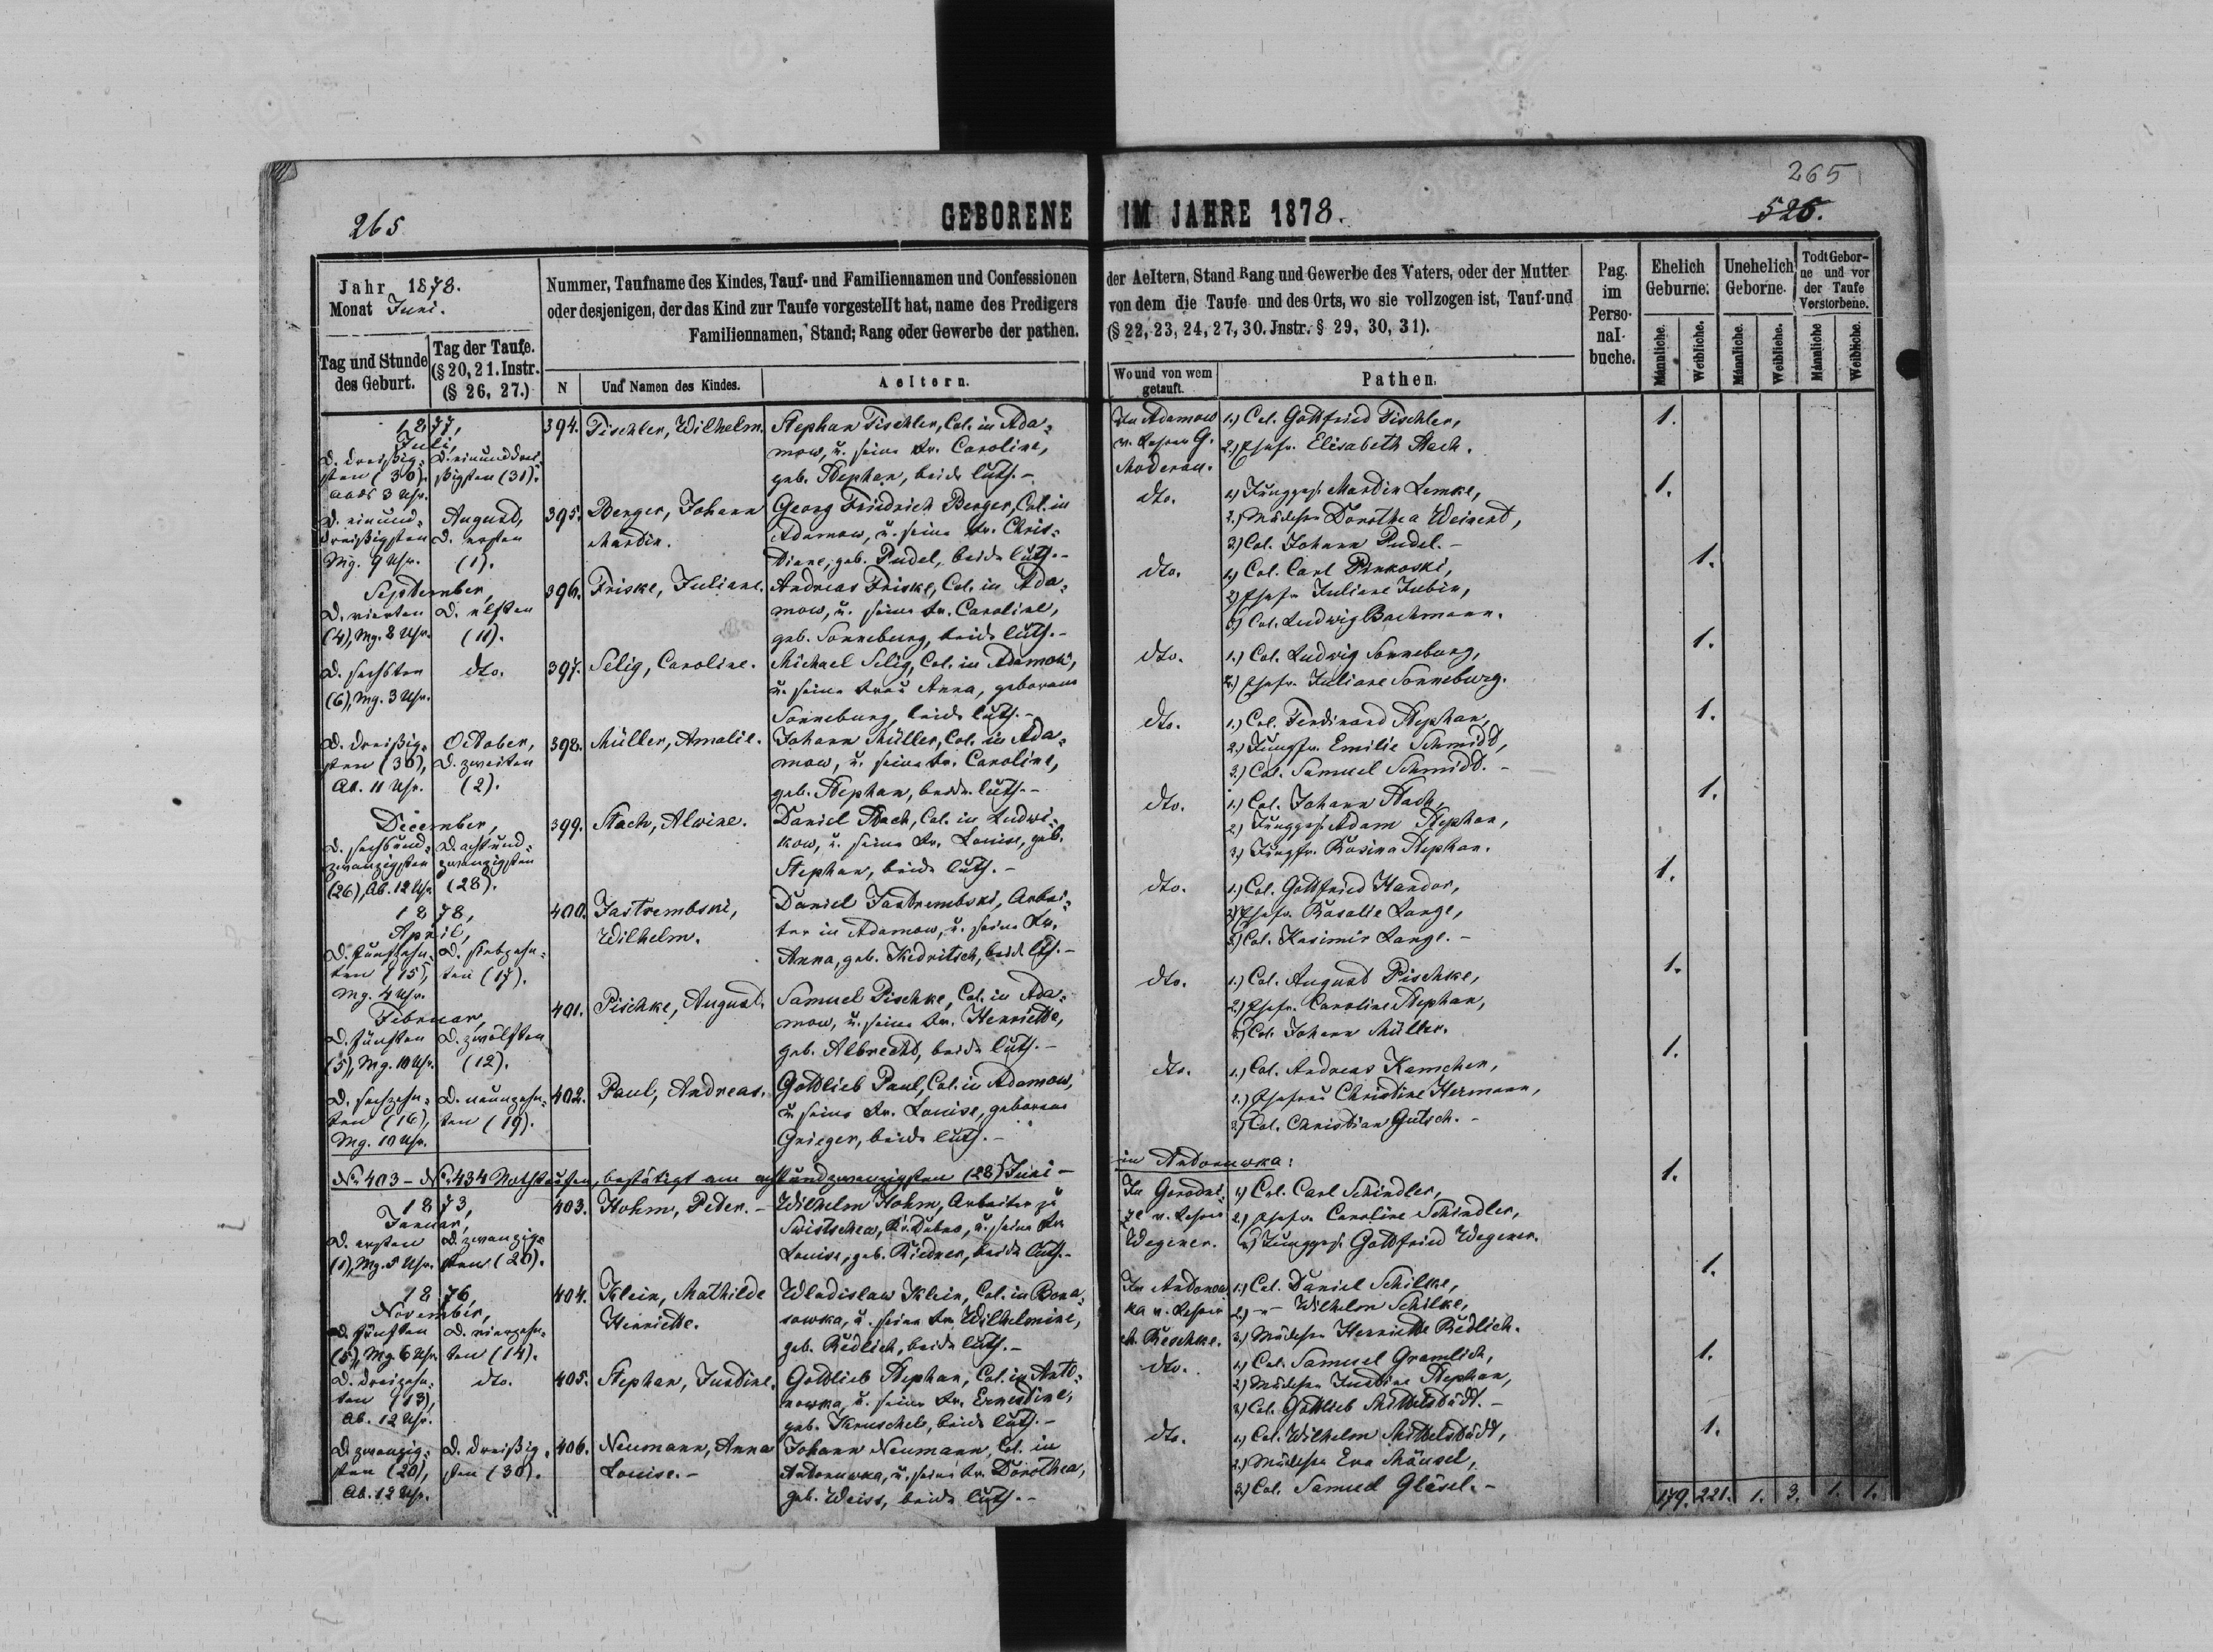 265
265
526.
GEBORENE IM JAHRE 1878.
Jahr 1878.
Monat Juni.
Tag und Stunde des Geburt.
Tag der Taufe. (§ 20, 21. Instr. (§ 26, 27.)
Nummer, Taufname des Kindes, Tauf- und Familiennamen und Confessionen
oder desjenigen, der das Kind zur Taufe vorgestellt hat, name des Predigers
Familiennamen, Stand; Rang oder Gewerbe der pathen.
N
Und Namen des Kindes.
Aeltern.
der Aeltern, Stand Rang und Gewerbe des Vaters, oder der Mutter
von dem die Taufe und des Orts, wo sie vollzogen ist, Tauf-und
(§ 22, 23, 24, 27, 30. Jnstr. § 29, 30, 31).
Wo und von wem getauft.
Pathen.
Pag. im Perso- nal- buche.
Ehelich Geburne:
Unehelich Geborne.
Todt Gebor- ne und vor der Taufe Verstorbene.
Männliche.
Weibliche.
Männliche.
Weibliche.
Männliche
Weibliche.
1877,
Juli,
D. dreißig-
sten (30).
Ab. 3 Uhr.
D. einunddrei-
ßigsten (31).
394. Tischler, Wilhelm.
Stephan Tischler, Col. in Ada-
mow, u. seine Fr. Caroline,
geb. Stephan, beide luth. -
In Adamow
v. Lehrer G.
Moderau.
1.) Col. Gottfried Tischler,
2.) Ehefr. Elisabeth Stach.
1.
D. einund-
dreißigsten
Mg. 9 Uhr.
August,
D. ersten
(1).
395. Berger, Johann
Martin.
Georg Friedrich Berger, Col. in
Adamow, u. seine Fr. Chris-
tiane, geb. Pudel, beide luth. -
dto.
1.) Junggs. Martin Lemke,
2.) Mädchen Dorothea Weinert,
3.) Col. Johann Pudel. -
1.
September,
D. vierten
(4), Mg. 8 Uhr.
D. elften
(11).
396. Friske, Juliane.
Andreas Friske, Col. in Ada-
mow, u. seine Fr. Caroline,
geb. Sonneburg, beide luth. -
dto.
1.) Col. Carl Pinkoski,
2.) Ehefr. Juliane Jubin,
3.) Col. Ludwig Bachmann.
1.
D. sechsten
(6), Mg. 3 Uhr.
dto.
397. Selig, Caroline.
Michael Selig, Col. in Adamow,
u. seine Frau Anna, geborene
Sonneburg, beide luth. -
dto.
1.) Col. Ludwig Sonneburg,
2.) Ehefr. Juliane Sonneburg.
1.
D. dreißig-
sten (30),
Ab. 11 Uhr.
October,
D. zweiten
(2).
398. Müller, Amalie.
Johann Müller, Col. in Ada-
mow, u. seine Fr. Caroline,
geb. Stephan, beide luth. -
dto.
1.) Col. Ferdinand Stephan,
2.) Jungfr. Emilie Schmidt,
3.) Col. Samuel Schmidt. -
1.
December,
D. sechsund-
zwanzigsten
(26), Ab. 12 Uhr.
D. achtund-
zwanzigsten
(28).
399. Stach, Alwine.
Daniel Stach, Col. in Ludwi-
kow, u. seine Fr. Louise, geb.
Stephan, beide luth. -
dto.
1.) Col. Johann Stach,
2.) Junggs. Adam Stephan,
3.) Jungfr. Rosina Stephan.
1.
1878,
April,
D. fünfzehn-
ten (15),
Mg. 4 Uhr.
D. siebzehn-
ten (17).
400. Jastrembski,
Wilhelm.
Daniel Jastrembski, Arbei-
ter in Adamow, u. seine Fr.
Anna, geb. Kidritsch, beide lth. -
dto.
1.) Col. Gottfried Handor,
2.) Ehefr. Rosalie Lange,
3.) Col. Kasimir Lange. -
1.
Februar,
D. fünften
(5), Mg. 10 Uhr.
D. zwölften
(12).
401. Pischke, August.
Samuel Pischke, Col. in Ada-
mow, u. seine Fr. Henriette,
geb. Albrecht, beide luth. -
dto.
1.) Col. August Pischke,
2.) Ehefr. Caroline Stephan,
3.) Col. Johann Müller.
1.
D. sechzehn-
ten (16),
Mg. 10 Uhr.
D. neunzehn-
ten (19).
402. Paul, Andreas.
Gottlieb Paul, Col. in Adamow,
u. seine Fr. Louise, geborene
Grieger, beide luth. -
dto.
1.) Col. Andreas Kamchen,
2.) Ehefrau Christine Hermann,
3.) Col. Christian Gutsch. -
1.
No. 403 - No. 434 Nothtaufen, bestätigt am achtundzwanzigsten (28) Juni -
in Antonuwka:
1873,
Januar,
D. ersten
(1), Mg. 5 Uhr.
D. zwanzig-
sten (20).
403. Hohm, Peter. -
Wilhelm Hohm, Arbeiter zu
Swistschea, Kr. Dubno, u. seine Fr.
Louise, geb. Riedner, beide luth. -
v. Lehrer
Wegener.
1.) Col. Carl Schindler,
2.) Ehefr. Caroline Schindler,
3.) Junggs. Gottfried Wegener.
1.
1876,
November,
D. fünften
(5), Mg. 6 Uhr.
D. vierzehn-
ten (14).
404. Klein, Mathilde
Henriette.
Wladislaw Klein, Col. in Bona-
sowka, u. seine Fr. Wilhelmine,
geb. Redlich, beide luth. -
In Antonow-
ka v. Lehrer
Reschke.
1.) Col. Daniel Schilke,
2.) -"- Wilhelm Schilke,
3.) Mädchen Henriette Redlich.
1.
D. dreizehn-
ten (13),
Ab. 12 Uhr.
dto.
405. Stephan, Justine.
Gottlieb Stephan, Col. in Anto-
nowka, u. seine Fr. Ernestine,
geb. Kruschel, beide luth. -
dto.
1.) Col. Samuel Gramlich,
2.) Mädchen Justine Stephan,
3.) Col. Gottlieb Mittelstädt. -
1.
D. zwanzig-
sten (20),
Ab. 12 Uhr.
D. dreißig-
sten (30).
406. Neumann, Anna
Louise. -
Johann Neumann, Col. in
Antonuwka, u. seine Fr. Dorothea,
geb. Weiss, beide luth. -
dto.
1.) Col. Wilhelm Mittelstädt,
2.) Mädchen Eva Mänsel,
3.) Col. Samuel Gläsel. -
1.
179. 221. 1. 3. 1. 1.